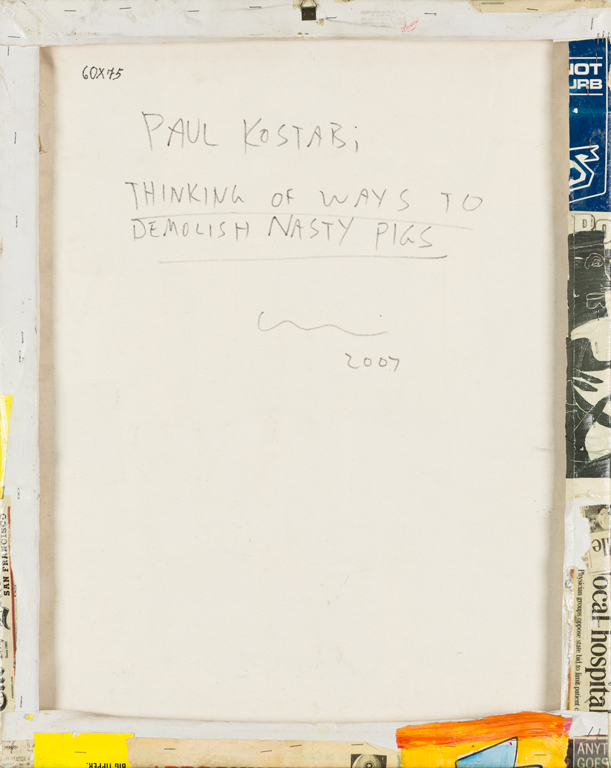 60X75
PAUL KOSTABi
THINKING OF WAYS TO
DEMOLISH NASTY PIGS
2007
NOT
URB
SAN FRANCISCO
ocal hospita
Physician groups oppose state bid to limit patient
BIG TIPPER.
ANYT
GOES